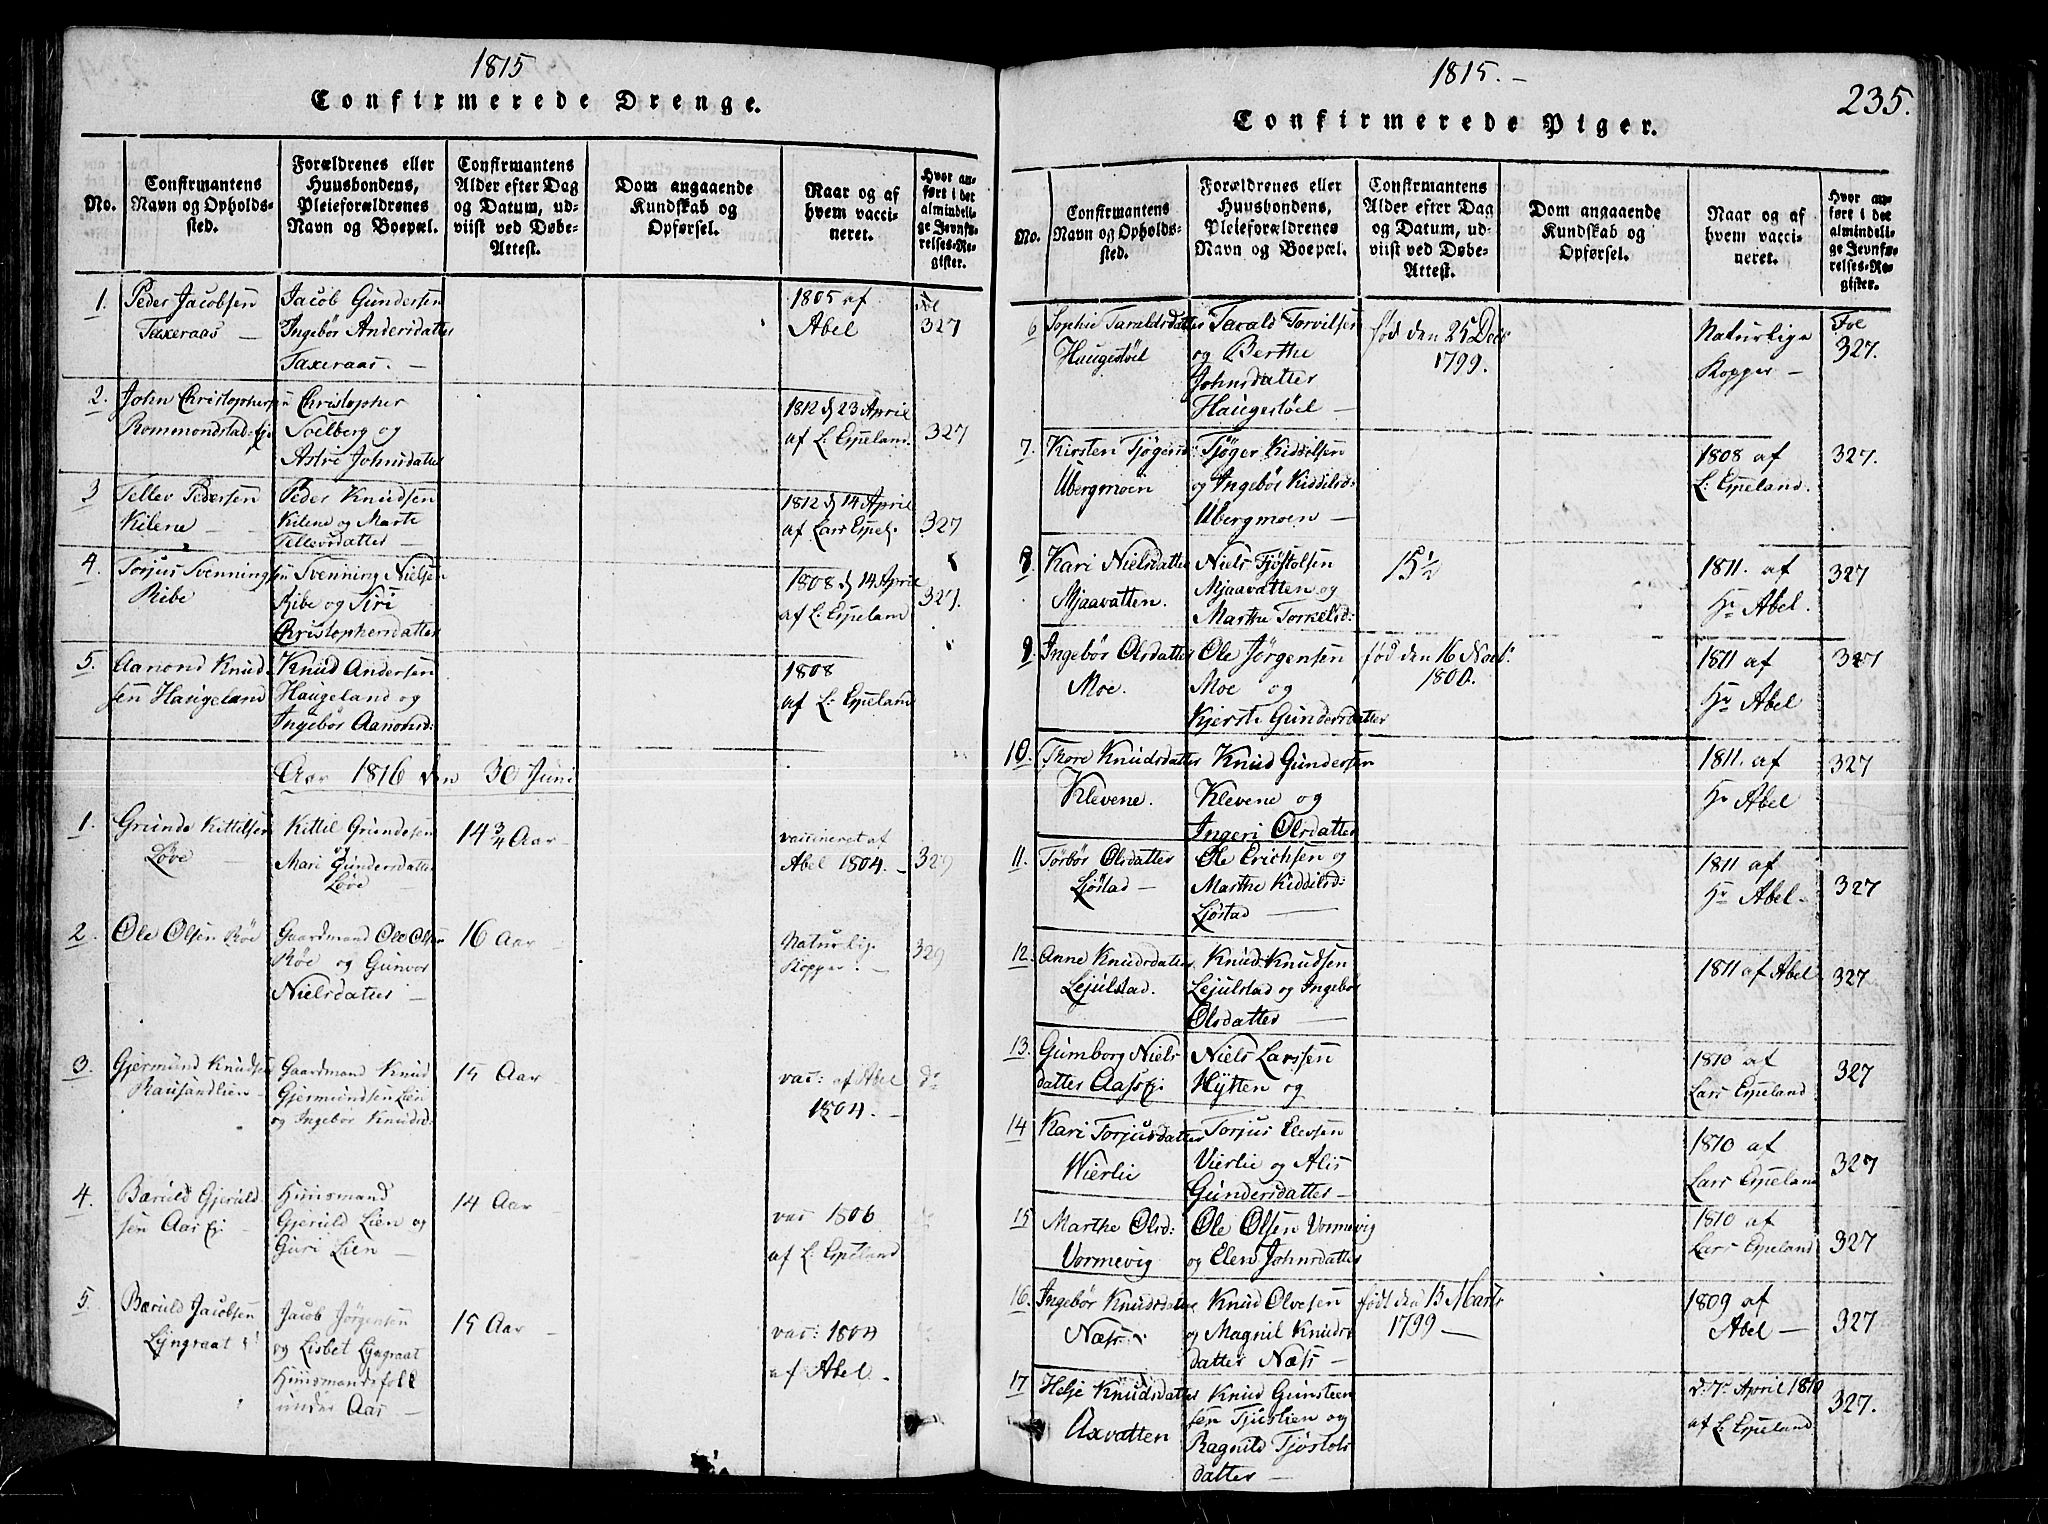 1815
Confirmerede Drenge.
No.
Confirmantens
Navn og Opholds-
sted.
Forældrenes eller
Huusbondens,
Pleieforældrenes
Navn og Boepæl.
Confirmantens
Alder efter Dag
og Datum, ud-
viist ved Døbe-
Attest.
Dom angaaende
Kundskab og
Opførsel.
Naar og af
hvem vacci-
neret.
Hvor an-
ført i det
almindeli-
ge Jevnfø-
relses-Re-
gister.
1.
Peder Jacobsen
Taxeraas —
Jacob Gundersen
Ingebør Andersdatter
Taxeraas. —
1805 af
Abel
327
2.
John Christophersen
Rommondstad: Eje
Christopher
Solberg og
Astri Johnsdatter
1812 d 23 April
af L: Espeland.
327
3
Tellev Pedersen
Kilene —
Peder Knudsen
Kilene og Marte
Tellevsdatter —
1812 d 14 April
af Lars Espel.
327
4.
Torjus Svenningsen
Ribe
Svenning Nielsen
Ribe og Siri
Christophersdatter
1808 d 14 April
af L: Espeland
327.
5.
Aanond Knud
sen Haugeland
Knud Andersen
Haugeland og
Ingebør Aanonsd:
1808
af L: Espeland
Aar 1816 den 30 Juni
1.
Grunde Kittilsen
Løve —
Kittil Grundesen
og
Mari Gundersdatter
Løve —
14 3/4 Aar —
vaccineret af
Abel 1804. —
329
2.
Ole Olsen Røe
Gaardmand Ole Olsen
Røe og Gunvor
Nielsdatter —
16 Aar —
Naturlig.
Kopper. —
329
3.
Gjermund Knudsen
Rausandlien —
Gaardmand Knud
Gjermundsen Lien
og Ingebør Knudsd:
15 Aar —
vac: af Abel
1804. —
do
4.
Bæruld Gjeruld-
sen Aas Ej. —
Huusmand
Gjeruld Lien og
Guri Lien —
14 Aar —
vac 1806
af L: Espeland
5.
Bæruld Jacobsen
Lyngraat
Jacob Jörgensen
og Lisbet Lyngraat
Huusmandsfolk
under Aas —
15 Aar —
vac: 1804
af Abel —
1815. —
235.
Confirmerede Piger.
No.
Confirmantens
Navn og Opholds-
sted.
Forældrenes eller
Huusbondens,
Pleieforældrenes
Navn og Boepæl.
Confirmantens
Alder efter Dag
og Datum, ud-
viist ved Døbe-
Attest.
Dom angaaende
Kundskab og
Opførsel.
Naar og af
hvem vacci-
neret.
Hvor an-
ført i det
almindeli-
ge Jevnfø-
relses-Re-
gister.
6
Sophie Taraldsdatter
Haugestøel
Tarald Torvilsen
og Berthe
Johnsdatter
Haugestøel —
fød den 25 Decs
1799.
Naturlige
Kopper —
Fol
327.
7.
Kirsten Tjøgersd:
Ubergmoen
Tjøger Kiddilsen
og Ingebør Kiddilsd:
Ubergmoen —
1808 af
L: Espeland.
327.
8.
Kari Nielsdatter
Mjaavatten.
Niels Tjøstolsen
Mjaavatten og
Marthe Torkelsd:
15 1/2
1811. af
Hr Abel.
327
9.
Ingebør Olsdatter
Moe.
Ole Jørgensen
Moe og
Kjersti Gundersdatter
fød den 16 Novb.
1800.
1811 af
Hr Abel
327
10.
Thore Knudsdatter
Klevene.
Knud Gundersen
Klevene og
Ingeri Olsdatter
1811. af
Hr Abel
327
11.
Torbør Olsdatter
Ljøstad —
Ole Erichsen og
Marthe Kiddilsd:
Ljøstad —
1811 af
Hr Abel.
327
12.
Anne Knudsdatter
Lejulstad.
Knud Knudsen
Lejulstad og Ingebør
Olsdatter —
1811 af Abel
327
13.
Gumborg Niels
datter Aas Ej.
Niels Larssen
Hytten og
1810 af
Lars Espeland
327
14
Kari Torjusdatter
Wierlie
Torjus Elevsen
Vierlie og Alis
Gundersdatter —
1810 af
Lars Espeland
327
15
Marthe Olsd:
Vormevig
Ole Olsen Vormevig
og Elen Johnsdatter
1810 af
Lars Espeland
327
16.
Ingebør Knudsdatter
Næss
Knud Olvesen
og Magnil Knuds
datter Næss —
født den 15 Marts
1799 —
1809 af
Abel —
327
17
Helje Knudsdatter
Axvatten
Knud Gunsteen
sen Tjuslien og
Ragnild Tjøstols
datter —
d: 7. April 1810
af L: Espeland
327.